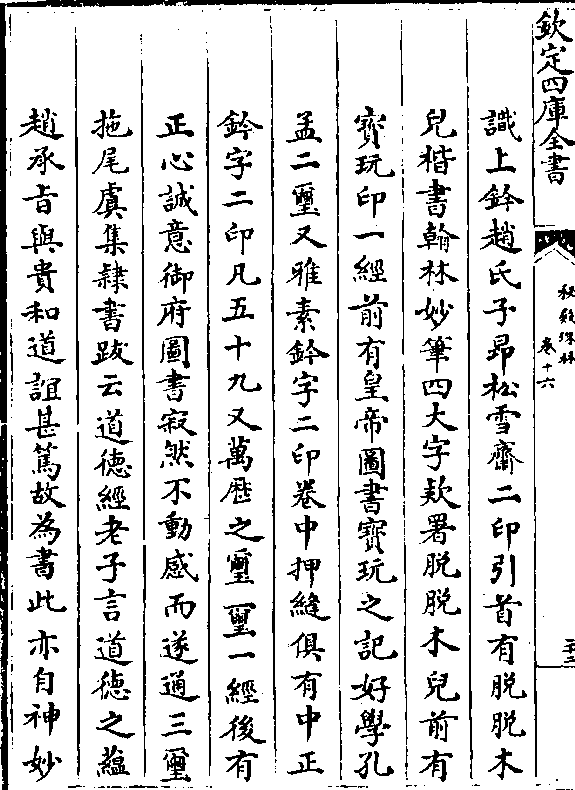 欽定四庫全書
秘殿珠林
卷十六
識上鈐趙氏子昂松雪齋二印引首有脱脱木
兒楷書翰林妙筆四大字欵署脱脱木兒前有
寳玩印一經前有皇帝圖書寳玩之記好學孔
孟二璽又雅素鈐字二印卷中押縫俱有中正
鈐字二印凡五十九又萬厯之璽一璽一經後有
正心誠意御府圖書寂然不動感而遂通三璽
拖尾虞集隸書跋云道德經老子言道德之蘊
趙承旨與貴和道誼甚篤故為書此亦自神妙